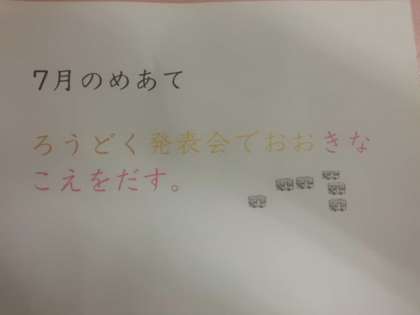 7月のめあて
ろうどく発表会でおおきな
こえをだす。